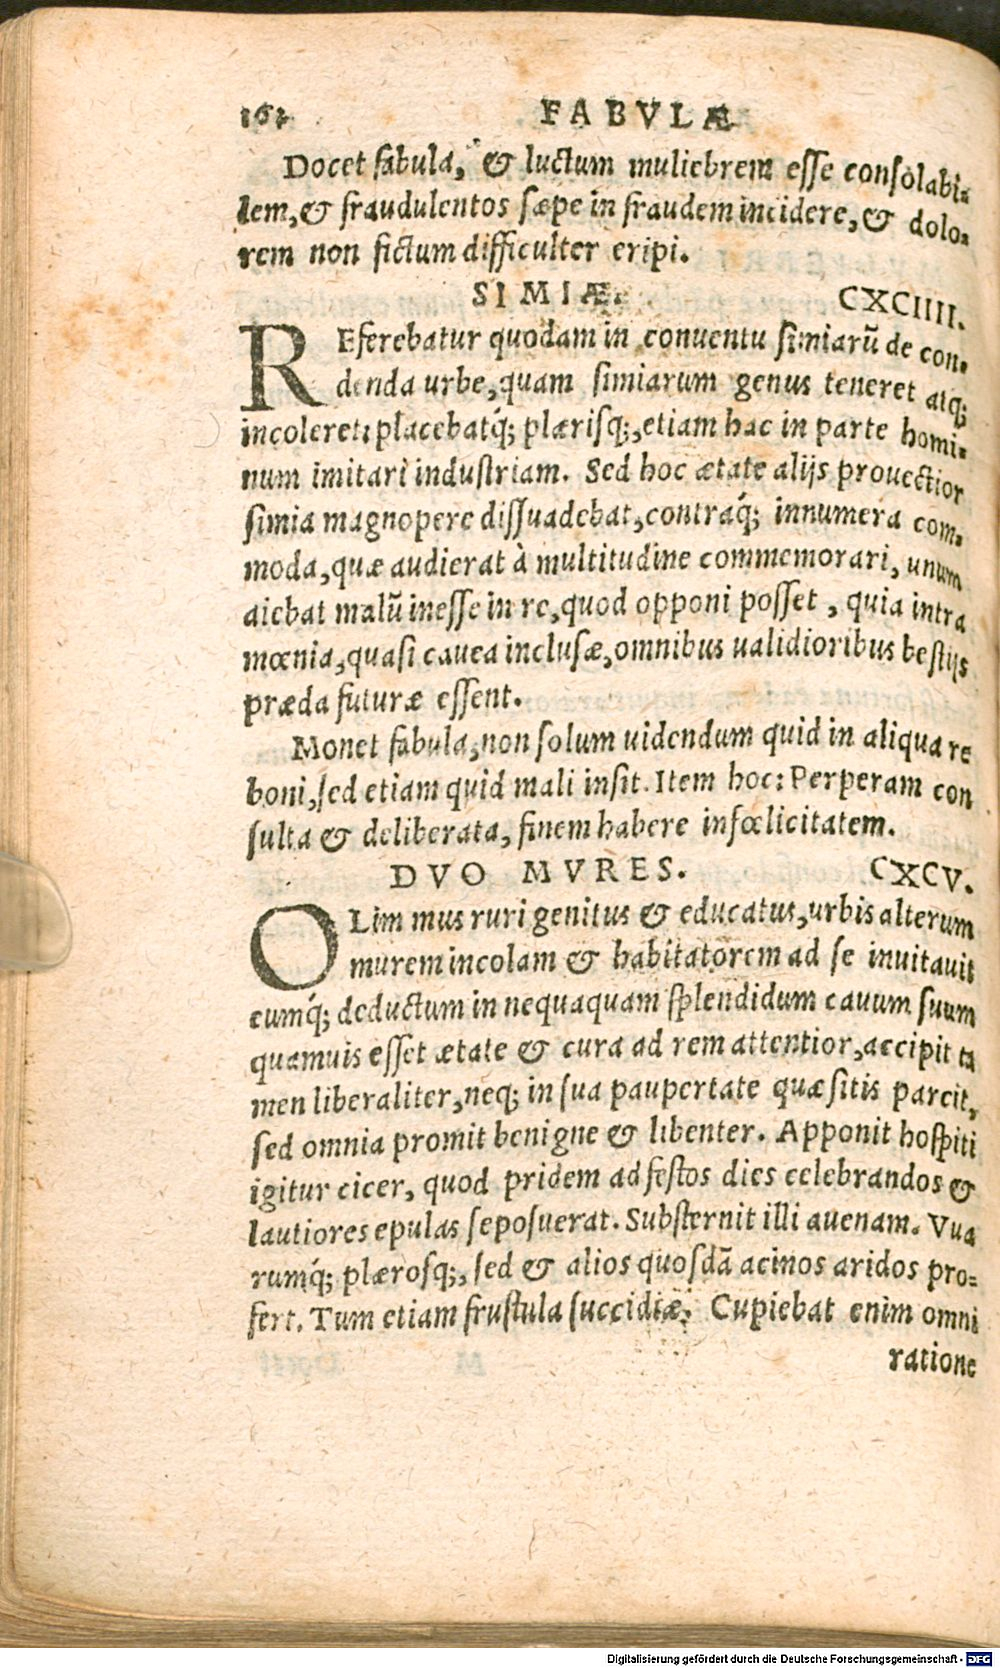 162 FABVLÆ
Docet fabula, & luctum muliebrem esse consolabi-
lem, & fraudulentos sæpe in fraudem incidere, & dolo-
rem non fictum difficulter eripi.
SIMIÆ. CXCIIII.
REferebatur quodam in conuentu simiarũ de con-
denda urbe, quam simiarum genus teneret atq;
incoleret: placebatq́; plærisq;, etiam hac in parte homi-
num imitari industriam. Sed hoc ætate alijs prouectior
simia magnopere dissuadebat, contraq́; innumera com-
moda, quæ audierat à multitudine commemorari, unum
aiebat malũ inesse in re, quod opponi posset, quia intra
mœnia, quasi cauea inclusæ, omnibus ualidioribus bestijs
præda futuræ essent.
Monet fabula, non solum uidendum quid in aliqua re
boni, sed etiam quid mali insit. Item hoc: Perperam con
sulta & deliberata, finem habere infœlicitatem.
DVO MVRES. CXCV.
OLim mus ruri genitus & educatus, urbis alterum
murem incolam & habitatorem ad se inuitauit
eumq́; deductum in nequaquam splendidum cauum suum
quamuis esset ætate & cura ad rem attentior, accipit ta
men liberaliter, neq; in sua paupertate quæsitis parcit,
sed omnia promit benigne & libenter. Apponit hospiti
igitur cicer, quod pridem ad festos dies celebrandos &
lautiores epulas seposuerat. Substernit illi auenam. Vua
rumq́; plærosq;, sed & alios quosdã acinos aridos pro-
fert. Tum etiam frustula succidiæ. Cupiebat enim omni
ratione
Digitalisierung gefördert durch die Deutsche Forschungsgemeinschaft - DFG